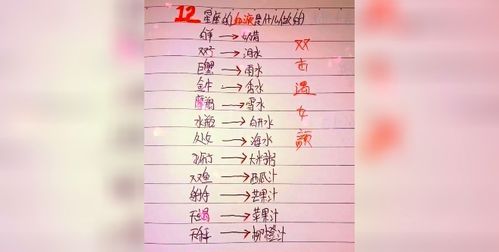 12星座的血液是什么做的
白羊→奶猫
双子→泪水
巨蟹→雨水
金牛→香水
摩羯→雪水
水瓶→白开水
处女→海水
→大米粥
双鱼→西瓜汁
射手→芒果汁
天蝎→苹果汁
天秤→柳橙汁
双击遇女颜